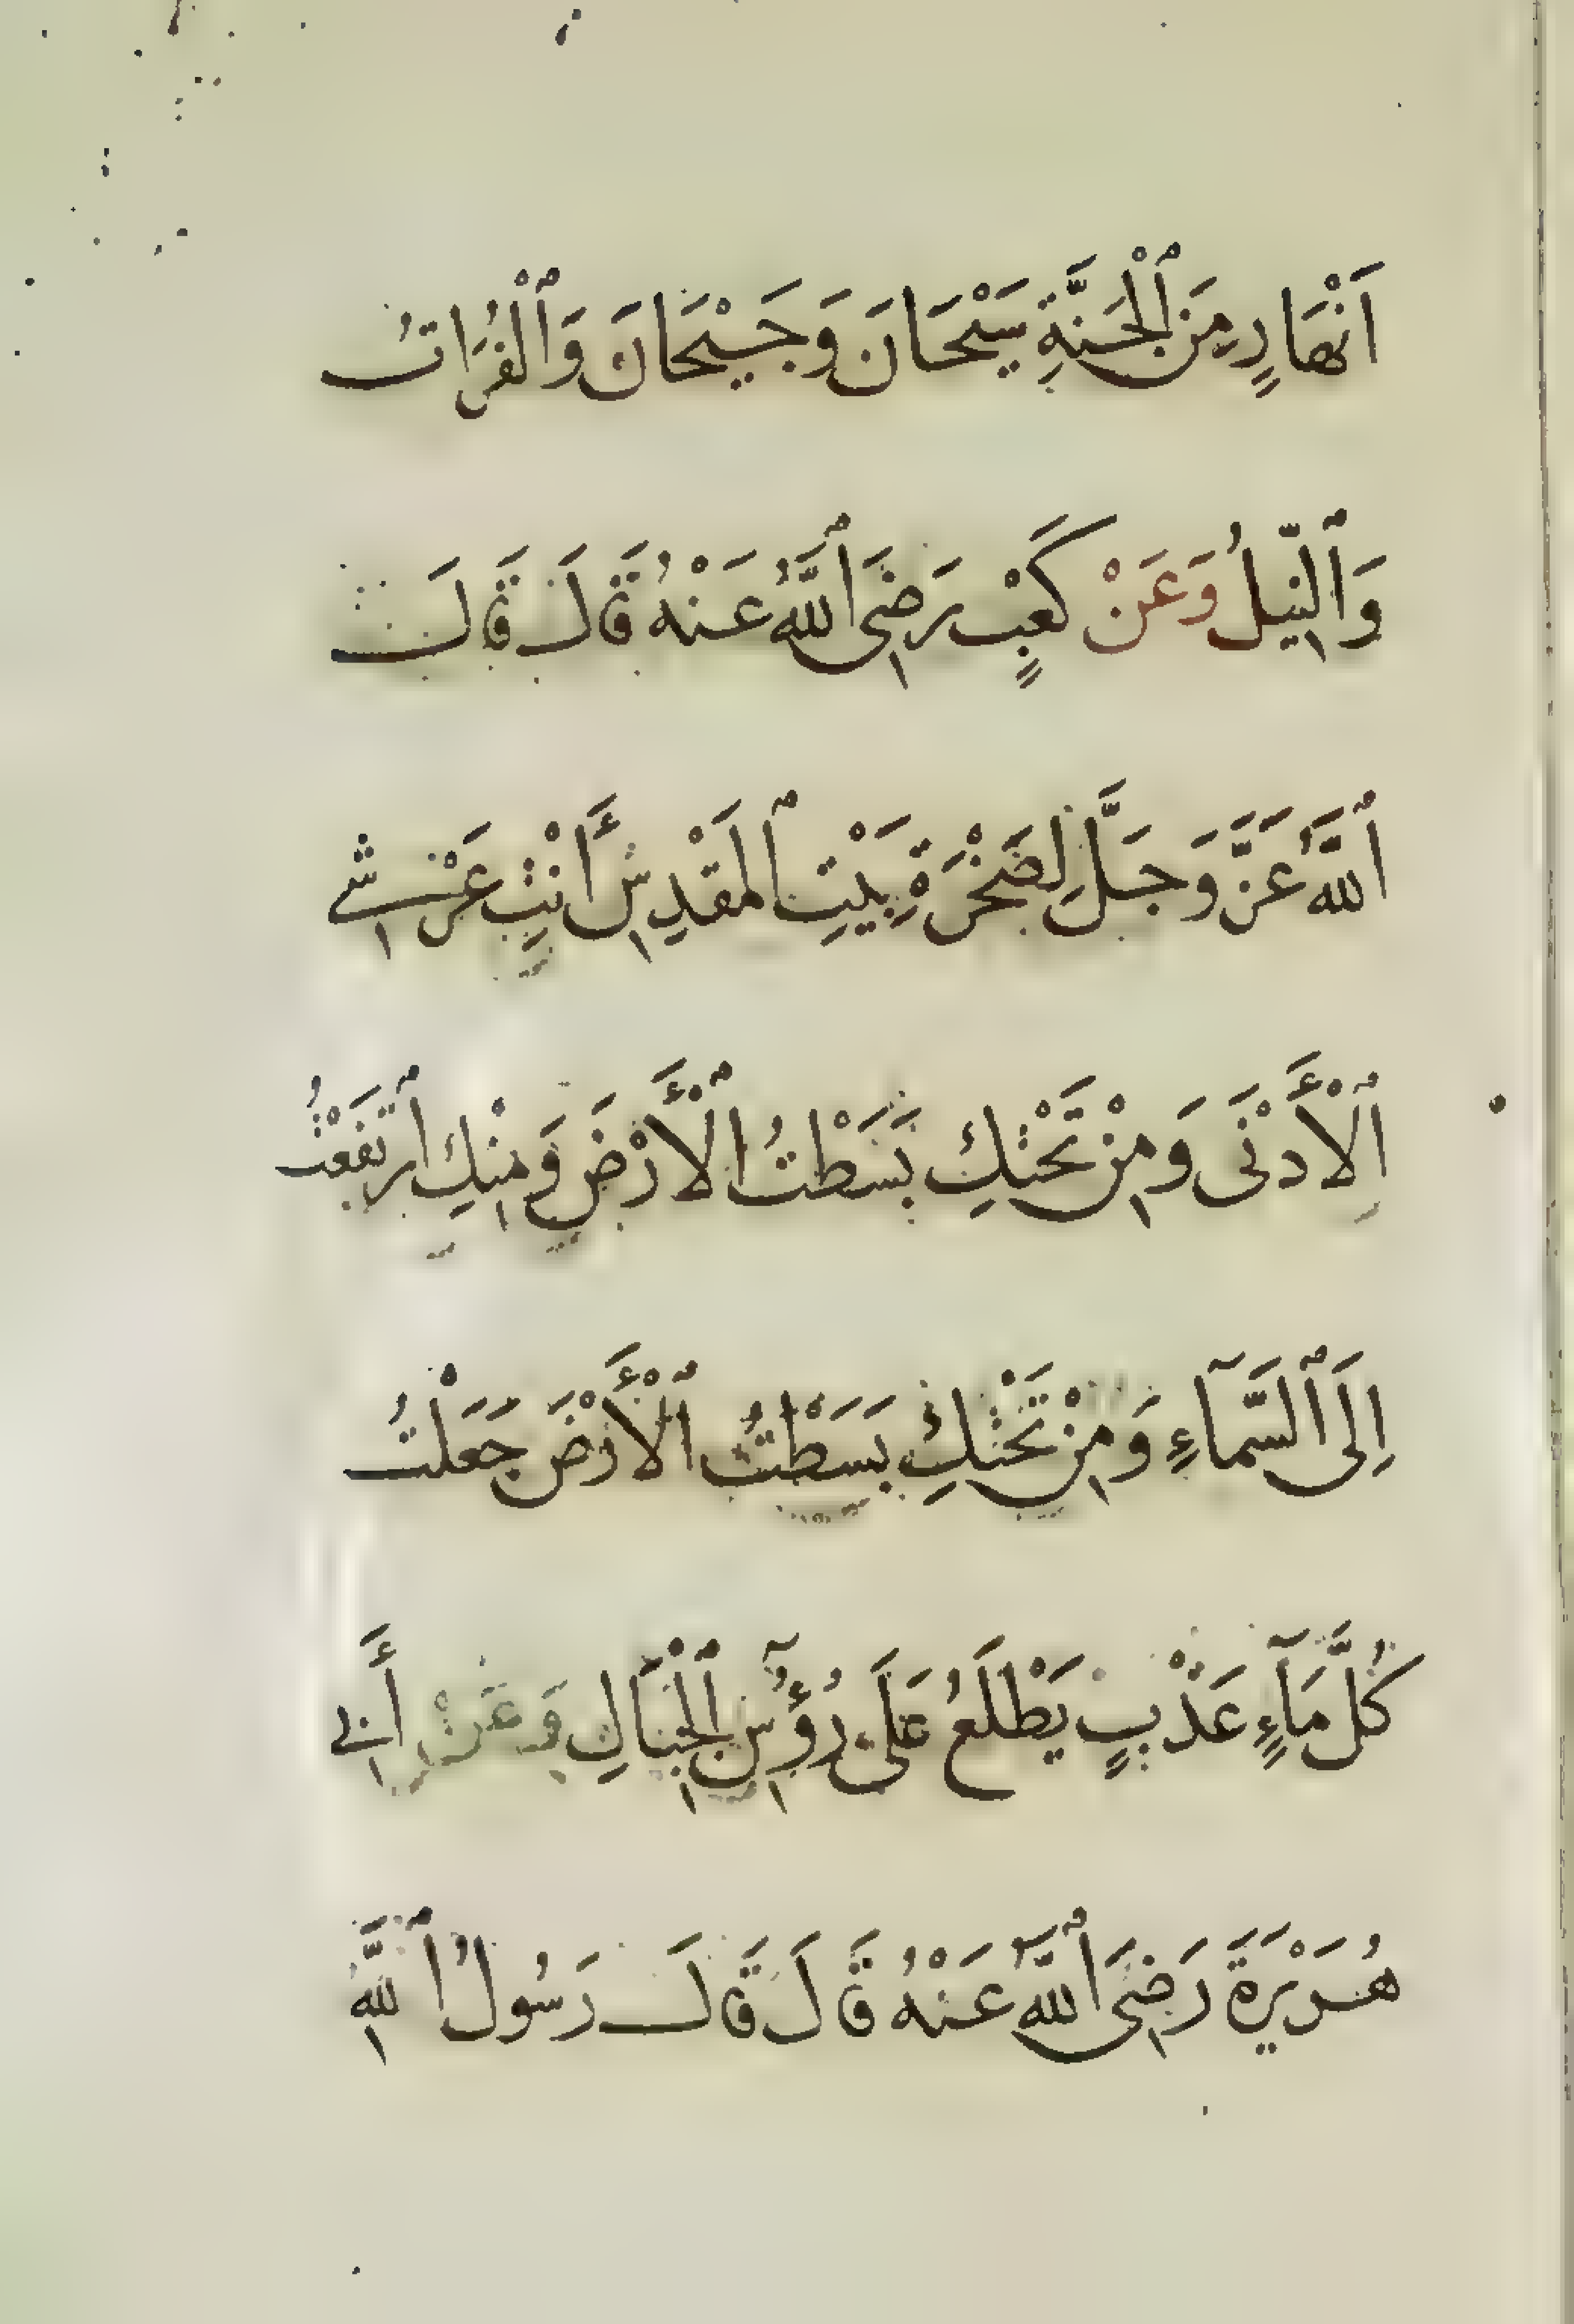 اَنْهَارٍ مِنَ ٱلْجَنَّةِ سَيْحَانَ وَجَيْحَانَ وَٱلْفُرَاتُ
وَٱلنِّيلُ وَعَنْ كَعْبٍ رَضِيَ ٱللَّهُ عَنْهُ قَالَ قَالَ
ٱللَّهُ عَزَّ وَجَلَّ لِصَخْرَةِ بَيْتِ ٱلمَقْدِسِ أَنْتِ عَرْشِي
ٱلْأَدْنَى وَمِنْ تَحْتِكِ بَسَطْتُ ٱلْأَرْضَ وَمِنْكِ ٱرْتَفَعْتُ
اِلَى ٱلسَّمَآءِ وَمِنْ تَحْتِكِ بَسَطْتُ ٱلْأَرْضَ جَعَلْتُ
كُلَّ مَآءٍ عَذْبٍ يَطْلَعُ عَلَى رُؤُسِ ٱلْجِبَالِ وَعَنْ أَبِي
هُرَيْرَةَ رَضِيَ ٱللَّهُ عَنْهُ قَالَ قَالَ رَسُولُ ٱللَّهِ